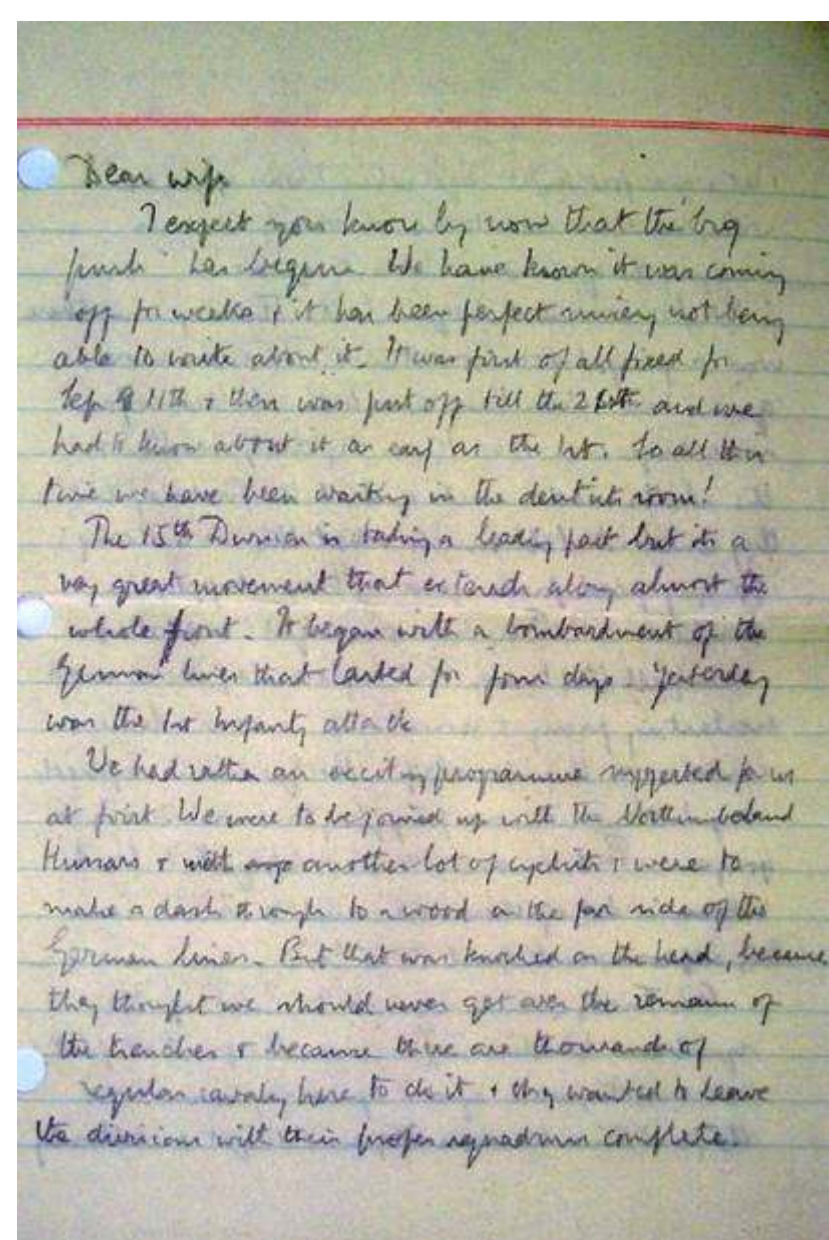 Dear wife
I expect you know by now that the 'big
push' has begun. We have known it was coming
off for weeks & it has been perfect misery not being
able to write about it. It was first of all fixed for
Sep 11th & then was put off till the 21st and we
had to know about it as early as the 1st. So all this
time we have been waiting in the dentist's room!
The 15th Division is taking a leading part but its a
very great movement that extends along almost the
whole front. It began with a bombardment of the
German lines that lasted for four days. Yesterday
was the 1st Infantry attack
We had rather an exciting programme suggested for us
at first. We were to be joined up with the Northumberland
Hussars & with another lot of cyclists & were to
make a dash through to a wood on the far side of the
German lines. But that was knocked on the head, because
they thought we should never get over the remains of
the trenches & because there are thousands of
regular cavalry here to do it & they wanted to leave
the divisions with their proper squadrons complete.